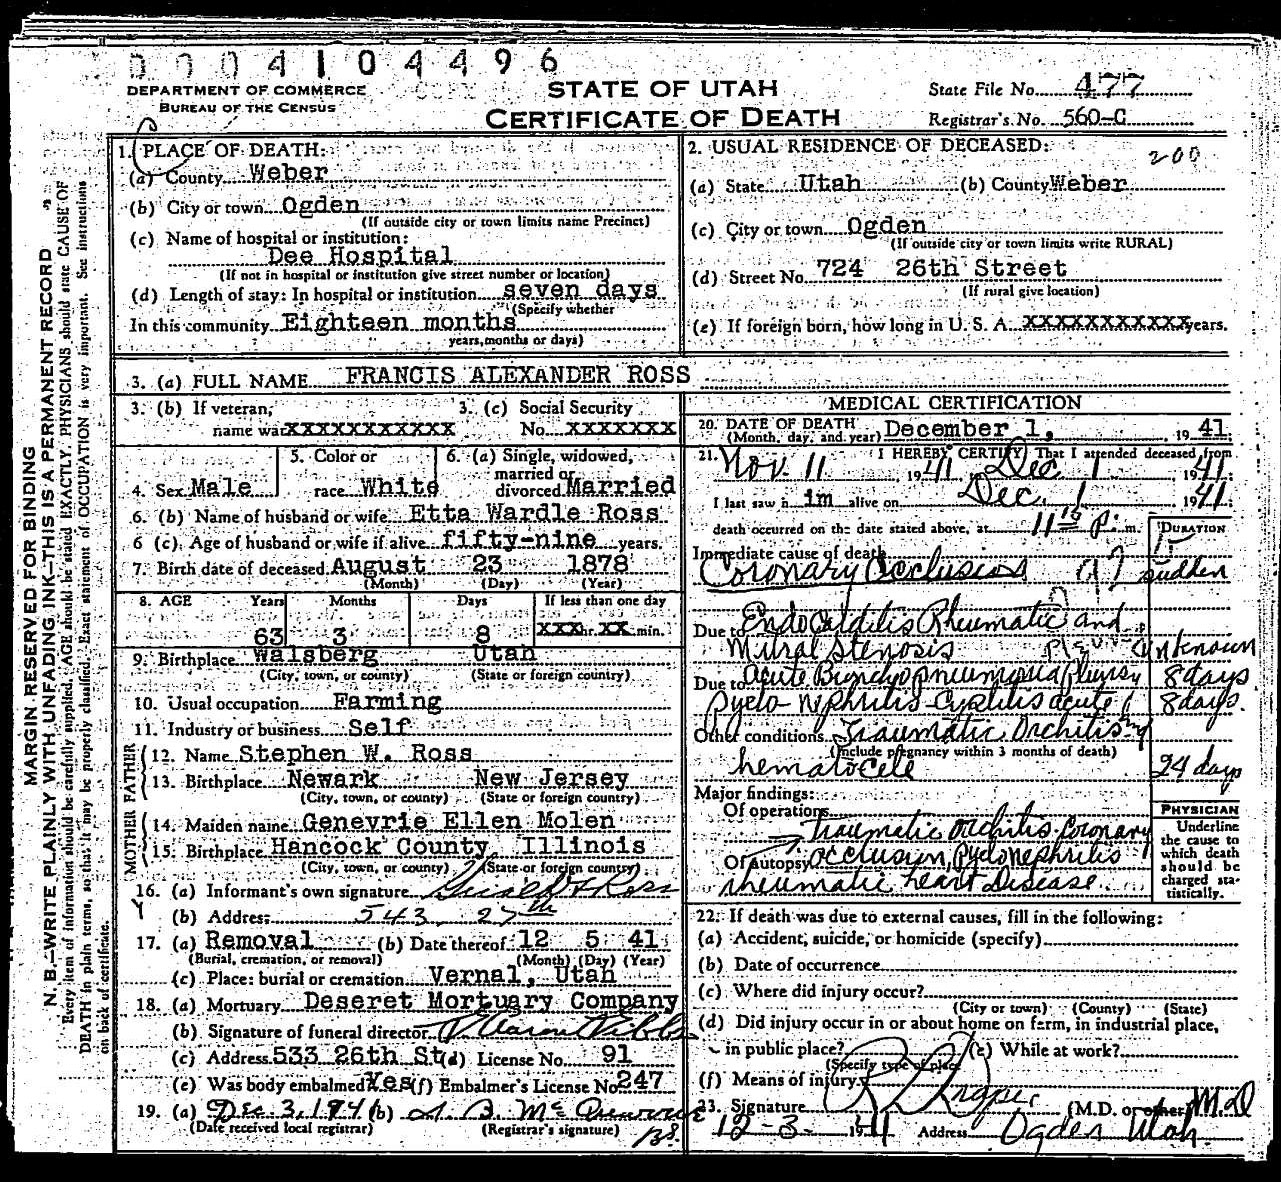 0004104496
DEPARTMENT OF COMMERCE
BUREAU OF THE CENSUS
STATE OF UTAH
CERTIFICATE OF DEATH
State File No. 477
Registrar's No. 560-C
1. PLACE OF DEATH:
(a) County Weber
(b) City or town Ogden
(If outside city or town limits name Precinct)
(c) Name of hospital or institution:
Dee Hospital
(If not in hospital or institution give street number or location)
(d) Length of stay: In hospital or institution seven days
(Specify whether
In this community Eighteen months
years, months or days)
2. USUAL RESIDENCE OF DECEASED:
200
(a) State Utah (b) County Weber
(c) City or town Ogden
(If outside city or town limits write RURAL)
(d) Street No. 724 26th Street
(If rural give location)
(e) If foreign born, how long in U. S. A. XXXXXXXXXXX years.
3. (a) FULL NAME FRANCIS ALEXANDER ROSS
3. (b) If veteran, 3. (c) Social Security
name war XXXXXXXXXXX No. XXXXXXX
4. Sex Male 5. Color or race White 6. (a) Single, widowed, married or divorced Married
6. (b) Name of husband or wife Etta Wardle Ross
6 (c). Age of husband or wife if alive fifty-nine years.
7. Birth date of deceased August 23 1878
(Month) (Day) (Year)
8. AGE Years Months Days If less than one day
63 3 8 XXX hr. XX min.
9. Birthplace Walsberg Utah
(City, town, or county) (State or foreign country)
10. Usual occupation Farming
11. Industry or business Self
FATHER
12. Name Stephen W. Ross
13. Birthplace Newark New Jersey
(City, town, or county) (State or foreign country)
MOTHER
14. Maiden name Genevrie Ellen Molen
15. Birthplace Hancock County, Illinois
(City, town, or county) (State or foreign country)
16. (a) Informant's own signature Ross
(b) Address 543 27th
17. (a) Removal (b) Date thereof 12 5 41
(Burial, cremation, or removal) (Month) (Day) (Year)
(c) Place: burial or cremation Vernal, Utah
18. (a) Mortuary Deseret Mortuary Company
(b) Signature of funeral director
(c) Address 533 26th St. (d) License No. 91
(e) Was body embalmed Yes (f) Embalmer's License No. 247
19. (a) Dec 3, 1941 (b)
(Date received local registrar) (Registrar's signature)
MEDICAL CERTIFICATION
20. DATE OF DEATH
(Month, day, and year) December 1, 1941.
21. I HEREBY CERTIFY, That I attended deceased from
Nov. 11 1941 Dec 1 1941.
I last saw him alive on Dec. 1 1941
death occurred on the date stated above, at 11 15 P. m.
DURATION
Immediate cause of death
Coronary Occlusion sudden
Due to Endocarditis Rheumatic and
Mitral stenosis unknown
Due to acute Bronchopneumonia Pleurisy 8 days
pyelo-nephritis-cystitis acute 8 days.
Other conditions Traumatic Orchitis
(Include pregnancy within 3 months of death)
hematocele 24 days
Major findings:
Of operations
Traumatic orchitis, coronary
Of autopsy occlusion, pyelonephritis
rheumatic heart disease
PHYSICIAN
Underline
the cause to
which death
should be
charged sta-
tistically.
22. If death was due to external causes, fill in the following:
(a) Accident, suicide, or homicide (specify)
(b) Date of occurrence
(c) Where did injury occur?
(City or town) (County) (State)
(d) Did injury occur in or about home on farm, in industrial place,
in public place? (e) While at work?
(Specify type of place)
(f) Means of injury
23. Signature (M.D. or other) M.D
12-3- 1941 Address Ogden Utah.
MARGIN RESERVED FOR BINDING
N. B.—WRITE PLAINLY WITH UNFADING INK—THIS IS A PERMANENT RECORD
Every item of information should be carefully supplied. AGE should be stated EXACTLY. PHYSICIANS should state CAUSE OF
DEATH in plain terms, so that it may be properly classified. Exact statement of OCCUPATION is very important. See instructions
on back of certificate.